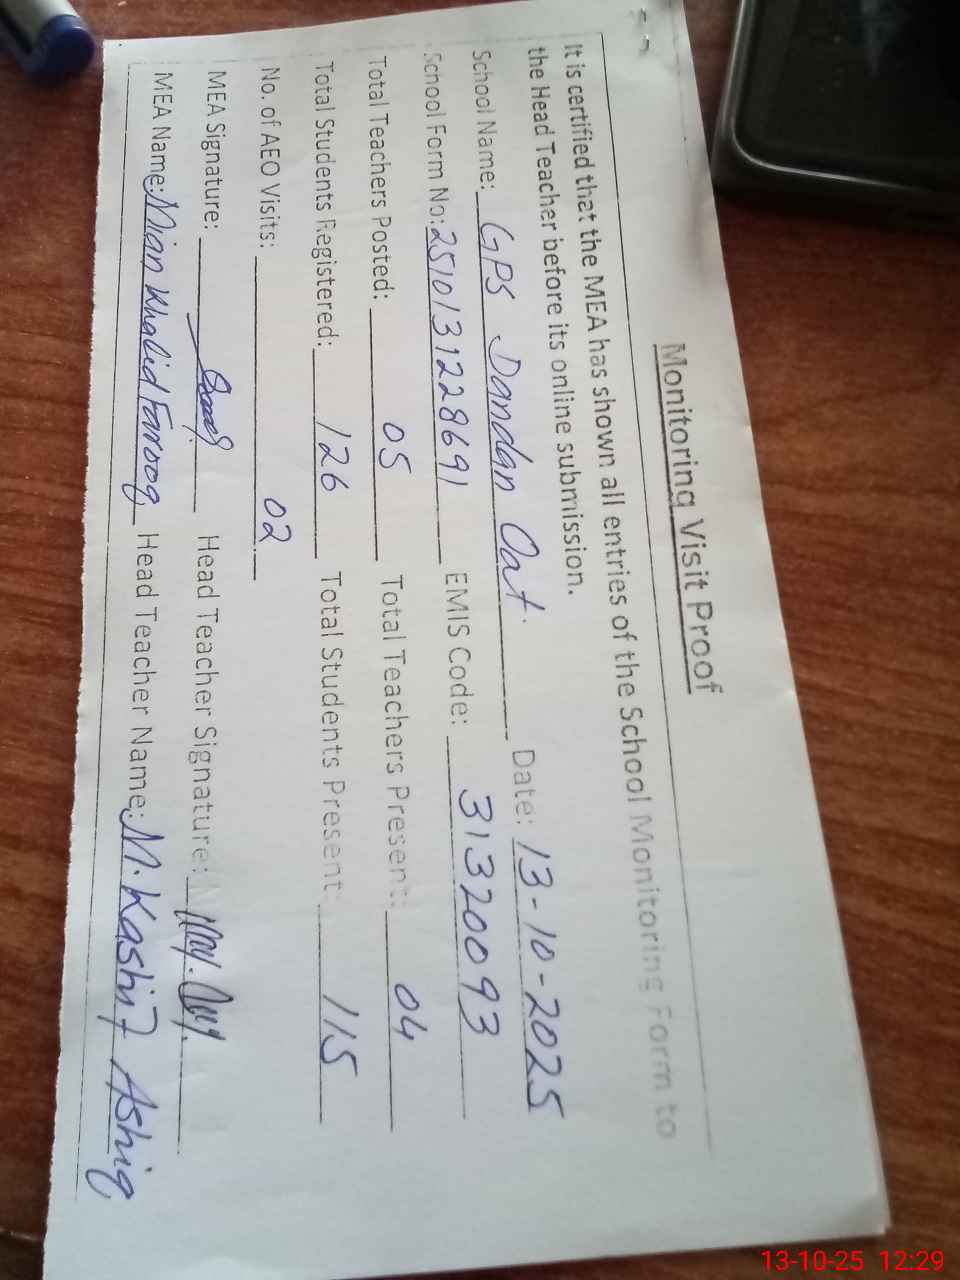 Monitoring Visit Proof
It is certified that the MEA has shown all entries of the School Monitoring Form to
the Head Teacher before its online submission.
School Name: GPS Dandan Oat. Date: 13-10-2025
School Form No: 2510131228691 EMIS Code: 31320093
Total Teachers Posted: 05 Total Teachers Present: 04
Total Students Registered: 126 Total Students Present: 115
No. of AEO Visits: 02
MEA Signature: Head Teacher Signature:
MEA Name: Mian Khalid Farooq Head Teacher Name: M. Kashif Ashiq
13-10-25 12:29